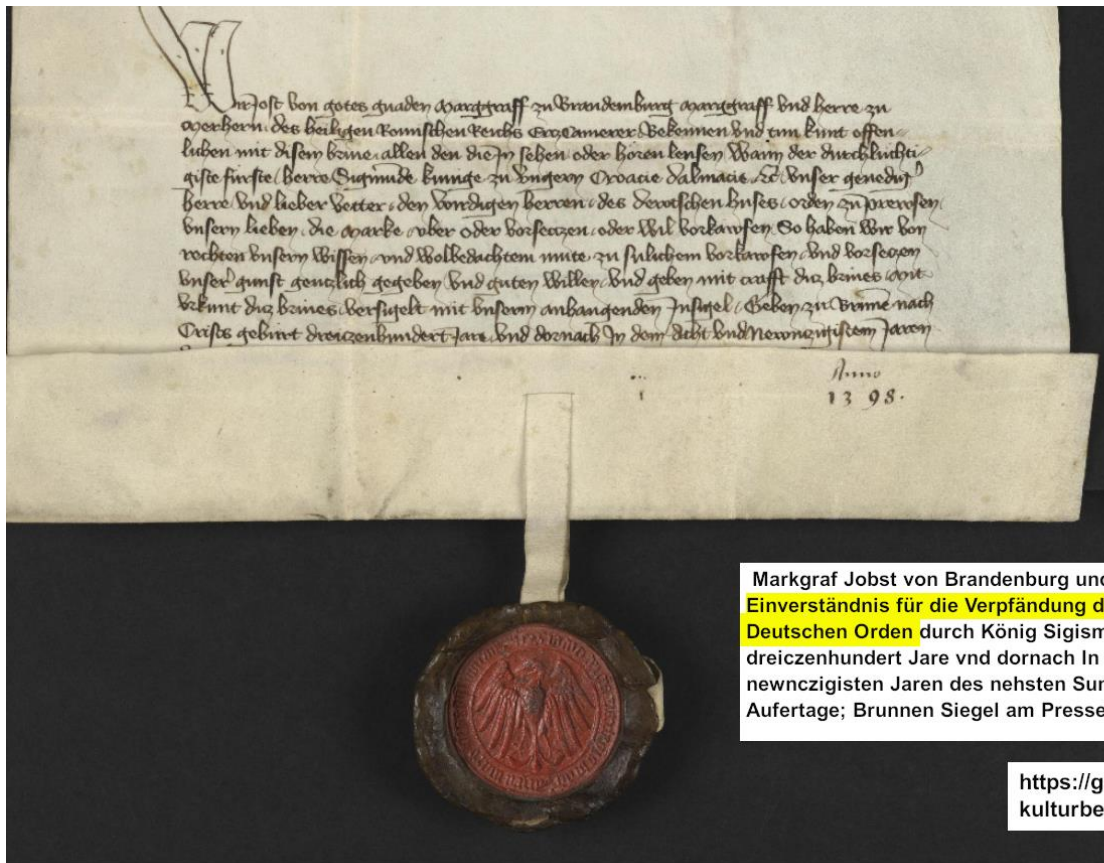 Wir Jost von gotes gnaden Marggraff zu Brandemburg Marggraff vnd herre zu
Merhern, des heiligen Romischen Reichs ErczCamerer Bekennen vnd tun kunt offen-
lichen mit disem briue, allen den die In sehen oder horen lensen Wann der durchluchti-
giste furste, herre Sigmunde kunige zu Vngern Croacie Dalmacie, etc vnser genedig
herre vnd lieber vetter, den wirdigen herren, des dewtschen huses, orden zu Prewssen,
vnsern lieben, die Marke, vber oder vorseczen, oder wil vorkawfen, So haben wir von
rechten vnsern wissen, vnd wolbedachtem mute, zu sulichem vorkawfen, vnd vorseczen
vnser gunst genczlich gegeben vnd guten willen, vnd geben mit crafft dicz briues, Mit
vrkunt dicz briues, versigelt mit vnserm anhangenden Insigel, Geben zu Brunne nach
Crists geburt dreiczenhundert Jare, vnd dornach In dem Acht vnd Newnczigistem Jaren
Anno
1398.
Markgraf Jobst von Brandenburg und
Einverständnis für die Verpfändung d
Deutschen Orden durch König Sigism
dreiczenhundert Jare vnd dornach In
newnczigisten Jaren des nehsten Sun
Aufertage; Brunnen Siegel am Presse
https://g
kulturbe